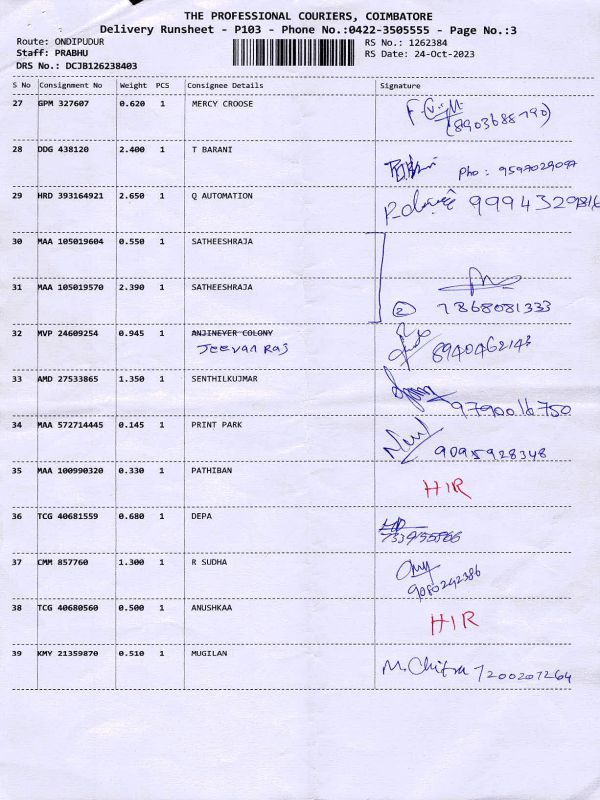 THE PROFESSIONAL COURIERS, COIMBATORE
Delivery Runsheet - P103 - Phone No.:0422-3505555 - Page No.:3
Route: ONDIPUDUR RS No.: 1262384
Staff: PRABHU RS Date: 24-Oct-2023
DRS No.: DCJB126238403
S No Consignment No Weight PCS Consignee Details Signature
27 GPM 327607 0.620 1 MERCY CROOSE
(8903688790)
28 DDG 438120 2.400 1 T BARANI
Pho : 9597029097
29 HRD 393164921 2.650 1 Q AUTOMATION
9994329816
30 MAA 105019604 0.550 1 SATHEESHRAJA
31 MAA 105019570 2.390 1 SATHEESHRAJA
2 7868081333
32 MVP 24609254 0.945 1 ANJINEYER COLONY
Jeevan Raj 8940462143
33 AMD 27533865 1.350 1 SENTHILKUJMAR
9790016750
34 MAA 572714445 0.145 1 PRINT PARK
9095928348
35 MAA 100990320 0.330 1 PATHIBAN
HIR
36 TCG 40681559 0.680 1 DEPA
37 CMM 857760 1.300 1 R SUDHA
9080242386
38 TCG 40680560 0.500 1 ANUSHKAA
HIR
39 KMY 21359870 0.510 1 MUGILAN
M. Chitra 7200207264